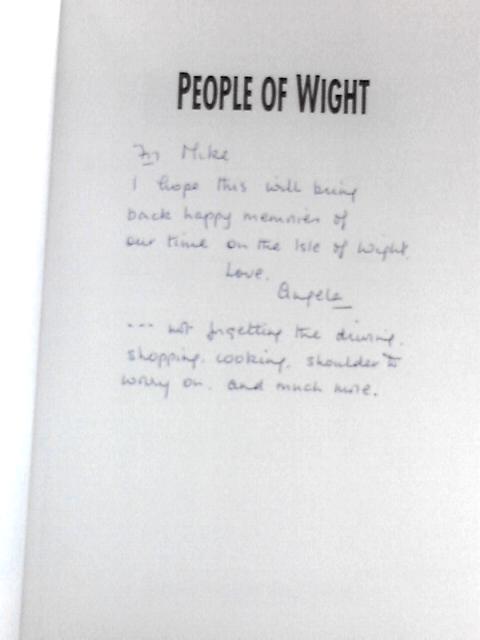 PEOPLE OF WIGHT
To Mike
I hope this will bring
back happy memories of
our time on the Isle of Wight.
Love,
Angela
--- not forgetting the driving,
shopping, cooking, shoulder to
worry on, and much more.